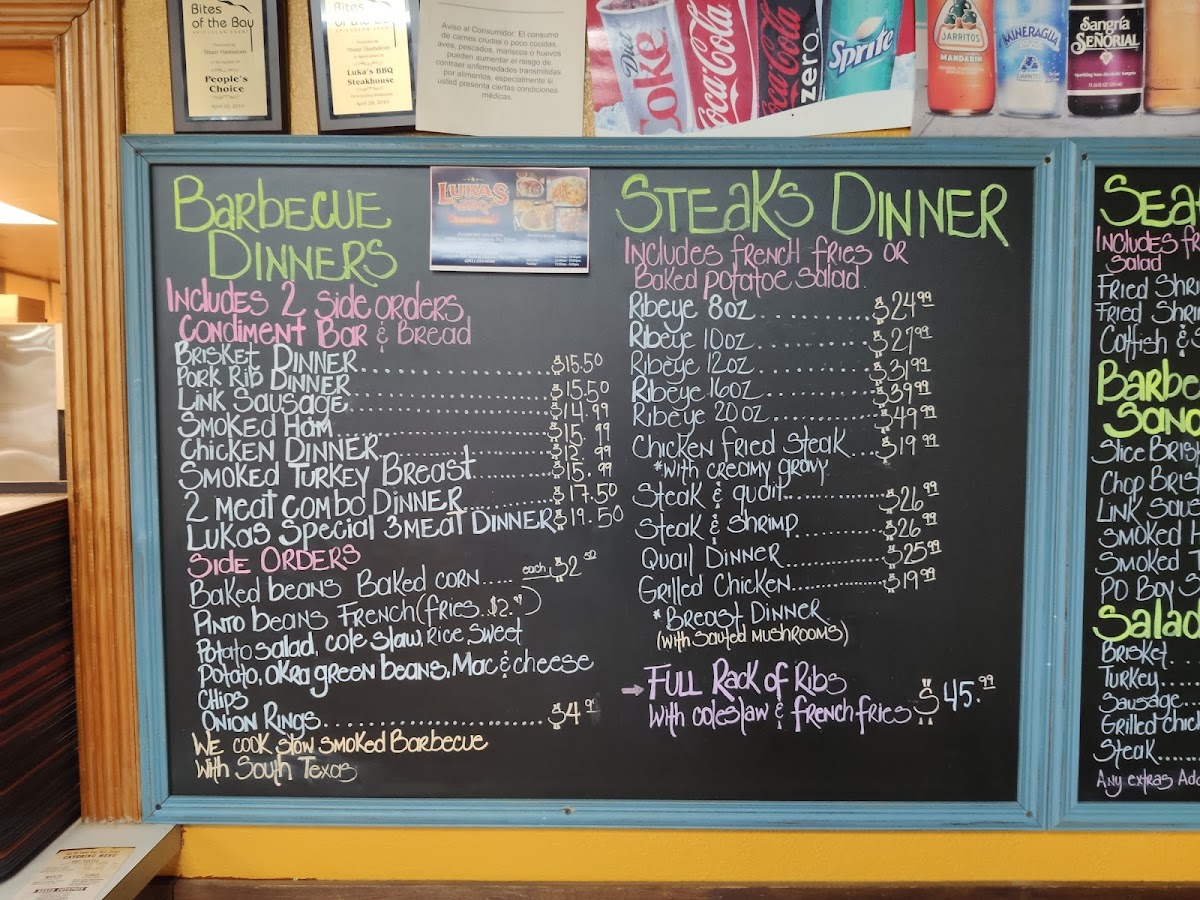 Bites
of the Bay
People's
Choice
Bites
of the Bay
Luka's BBQ
Steakhouse
Aviso al Consumidor: El consumo
de carnes crudas o poco cocidas,
aves, pescados, mariscos o huevos
pueden aumentar el riesgo de
contraer enfermedades transmitidas
por alimentos, especialmente si
usted presenta ciertas condiciones
médicas.
Diet Coke
Coca-Cola
Coca-Cola zero
Sprite
JARRITOS
MANDARIN
MINERAGUA
JARRITOS
Sangría
SEÑORIAL
LUKAS
BBQ
Barbecue
Dinners
Includes 2 side orders
Condiment Bar & Bread
Brisket Dinner $15.50
Pork Rib Dinner $15.50
Link Sausage $14.99
Smoked Ham $15.99
Chicken Dinner $12.99
Smoked Turkey Breast $15.99
2 meat combo Dinner $17.50
Lukas Special 3meat Dinner $19.50
Side Orders
Baked beans Baked corn..... each $2.50
Pinto beans French (fries..$2.99)
Potato salad, cole slaw, Rice Sweet
Potato, okra green beans, Mac & cheese
Chips
Onion Rings $4
We cook slow smoked Barbecue
With South Texas
Steaks Dinner
Includes french fries or
Baked potatoe salad.
Ribeye 8oz $24.99
Ribeye 10oz $27.99
Ribeye 12oz $31.99
Ribeye 16oz $39.99
Ribeye 20oz $49.99
Chicken fried steak $19.99
*with creamy gravy
Steak & quail $26.99
Steak & shrimp $26.99
Quail Dinner $25.99
Grilled Chicken $19.99
*Breast Dinner
(with sauted mushrooms)
→ Full Rack of Ribs
with coleslaw & french fries $45.99
Sea
Includes fr
Salad
Fried Shri
Fried Shri
Catfish & S
Barbe
Sand
Slice Brisk
Chop Bris
Link Saus
Smoked H
Smoked T
Po Boy S
Salad
Brisket
Turkey
Sausage
Grilled chic
Steak
Any extras Add
CATERING MENU